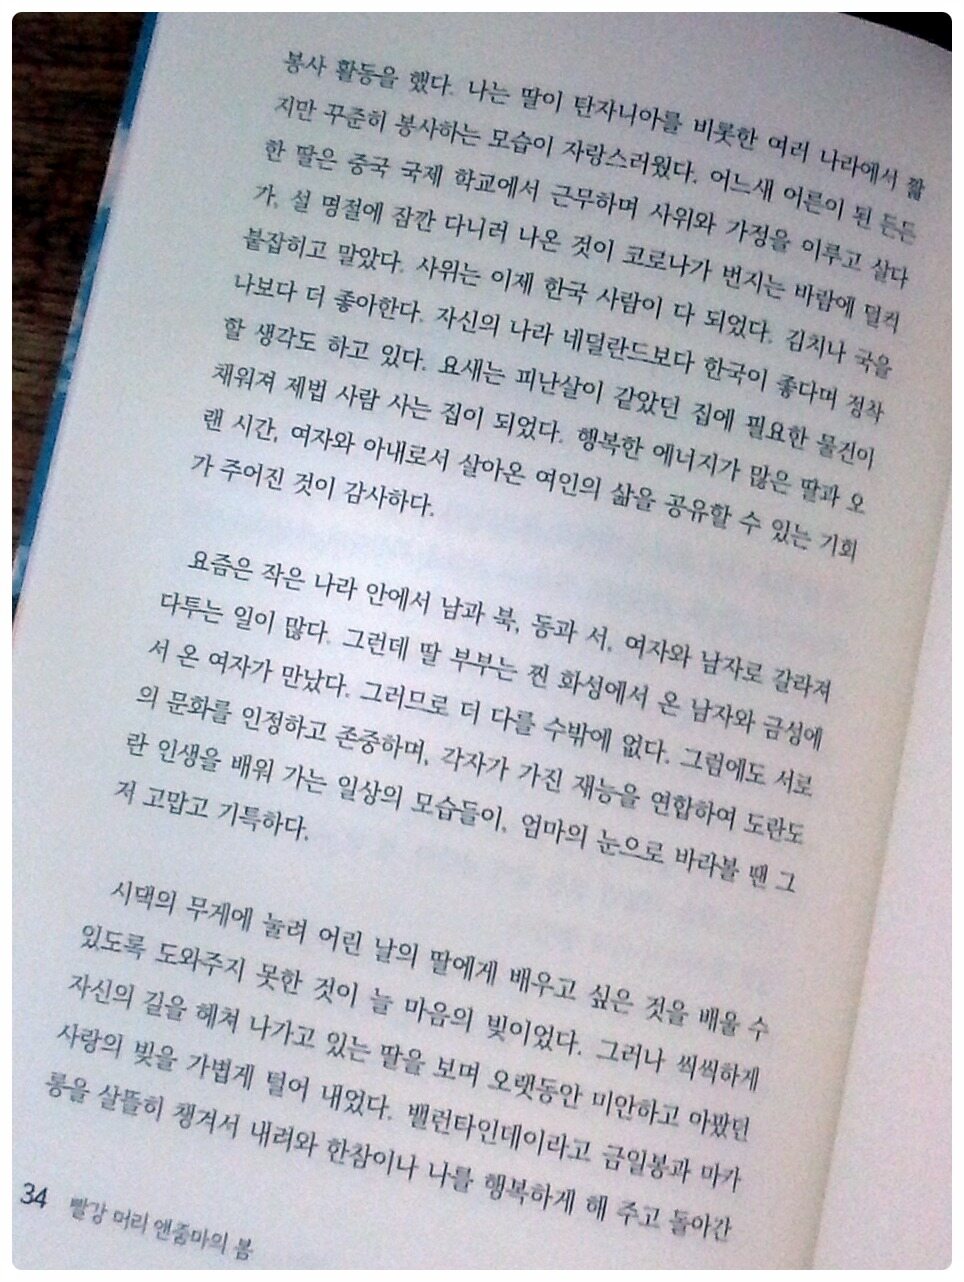 봉사 활동을 했다. 나는 딸이 탄자니아를 비롯한 여러 나라에서 짧
지만 꾸준히 봉사하는 모습이 자랑스러웠다. 어느새 어른이 된 든든
한 딸은 중국 국제 학교에서 근무하며 사위와 가정을 이루고 살다
가, 설 명절에 잠깐 다니러 나온 것이 코로나가 번지는 바람에 덜컥
붙잡히고 말았다. 사위는 이제 한국 사람이 다 되었다. 김치나 국을
나보다 더 좋아한다. 자신의 나라 네덜란드보다 한국이 좋다며 정착
할 생각도 하고 있다. 요새는 피난살이 같았던 집에 필요한 물건이
채워져 제법 사람 사는 집이 되었다. 행복한 에너지가 많은 딸과 오
랜 시간, 여자와 아내로서 살아온 여인의 삶을 공유할 수 있는 기회
가 주어진 것이 감사하다.
요즘은 작은 나라 안에서 남과 북, 동과 서, 여자와 남자로 갈라져
다투는 일이 많다. 그런데 딸 부부는 찐 화성에서 온 남자와 금성에
서 온 여자가 만났다. 그러므로 더 다를 수밖에 없다. 그럼에도 서로
의 문화를 인정하고 존중하며, 각자가 가진 재능을 연합하여 도란도
란 인생을 배워 가는 일상의 모습들이, 엄마의 눈으로 바라볼 땐 그
저 고맙고 기특하다.
시댁의 무게에 눌려 어린 날의 딸에게 배우고 싶은 것을 배울 수
있도록 도와주지 못한 것이 늘 마음의 빚이었다. 그러나 씩씩하게
자신의 길을 헤쳐 나가고 있는 딸을 보며 오랫동안 미안하고 아팠던
사랑의 빚을 가볍게 털어 내었다. 밸런타인데이라고 금일봉과 마카
롱을 살뜰히 챙겨서 내려와 한참이나 나를 행복하게 해 주고 돌아간
34 빨강 머리 앤줌마의 봄